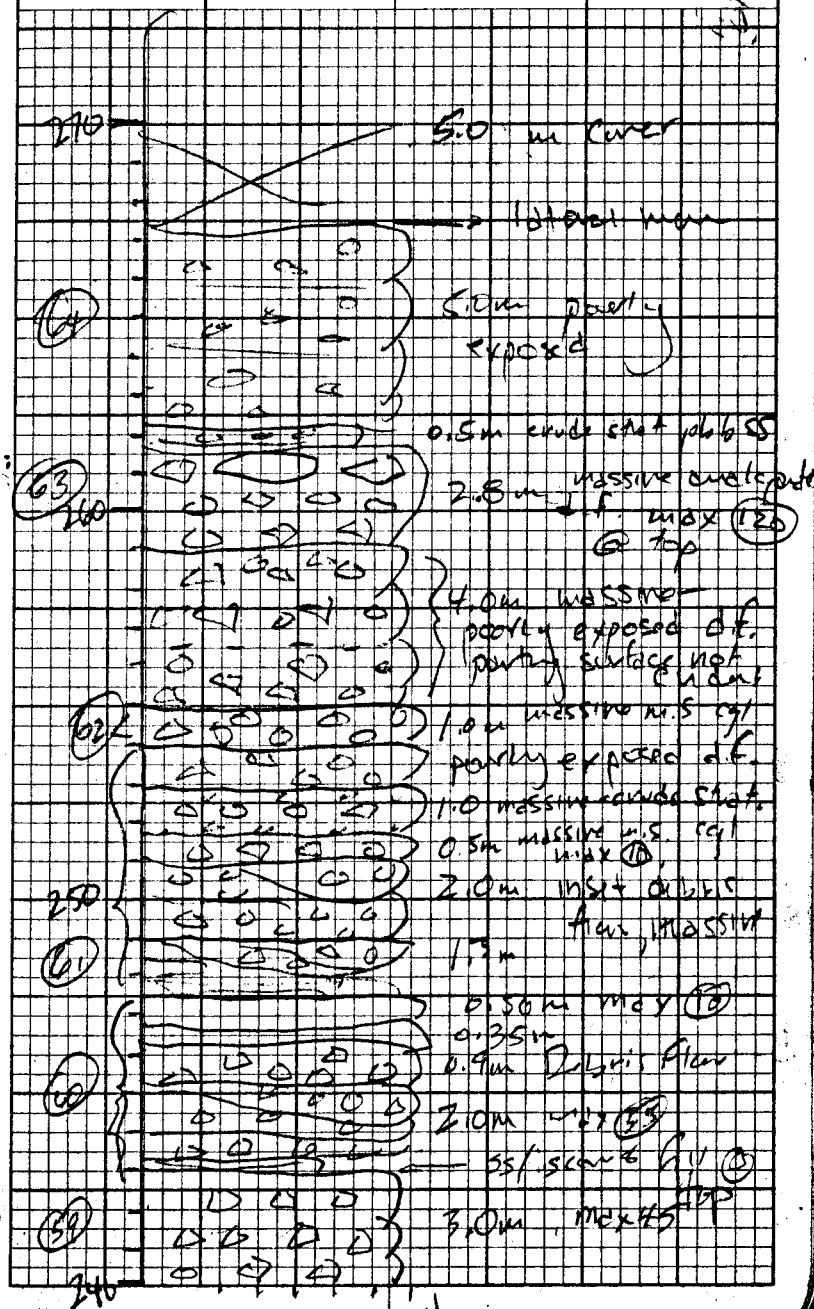 270
5.0 m cover
64
5.0m poorly
exposed
0.5m crude strat pbb SS
63
2.8 m massive
260
max 120
@ top
4.0m massive
poorly exposed d.f.
parting surface not
62
1.0m massive m.s cgl
poorly exposed d.f.
1.0 massive crude strat.
0.5m massive m.s. cgl
max 10
2.0m inset debris
250
flow, massive
61
0.50m max 10
0.35m
0.9m Debris flow
60
2.0m max
ss/
top
59
3.0m, max 45
240